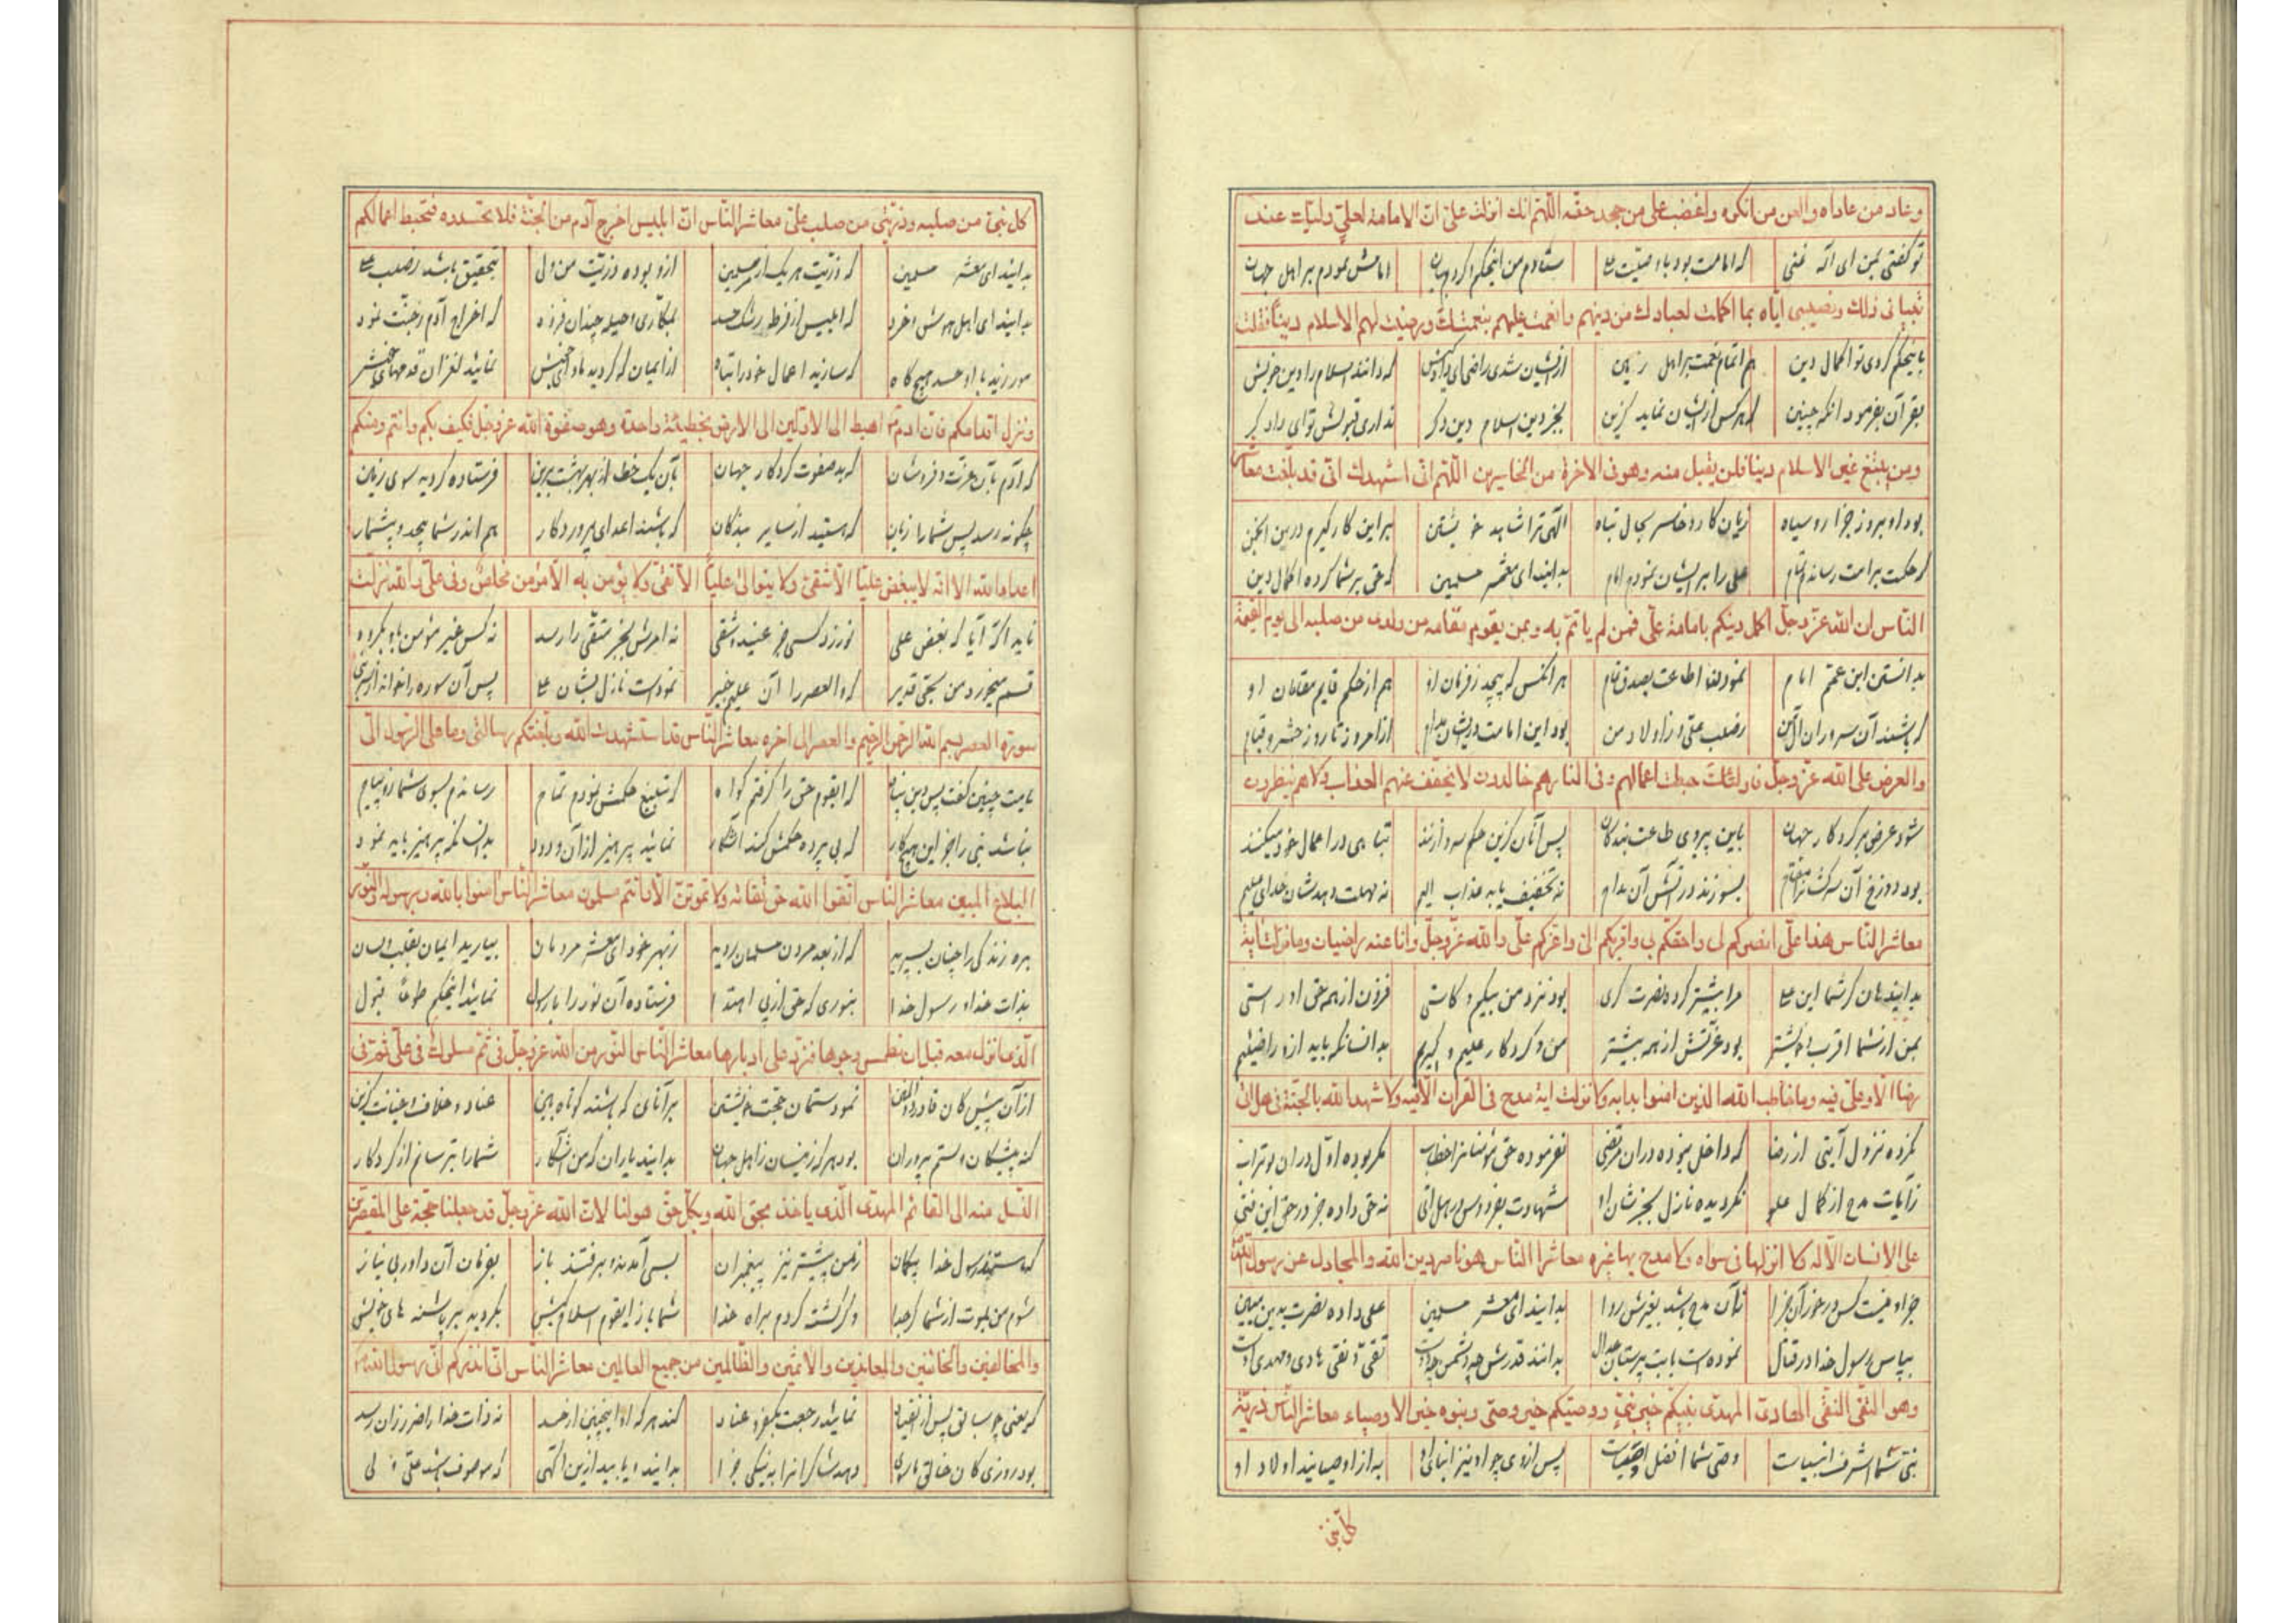 وعاد من عاداه والعن من انكره واغضب على من جحد حقه اللهم انك انزلت على ان الامامة لعلي وليك عند
تو گفتی بمن ای اله غنی که امامت بود با وصیت علی ستادم من اینحکم امامش نمودم بر اهل جهان
تبيانى ذلك ونصبى اياه بما اكملت لعبادك من دينهم واتممت عليهم بنعمتك ورضيت لهم الاسلام دينا فقلت
باینحکم کردی تو اکمال دین هم اتمام نعمت بر اهل زمین ازایشان شدی راضی ای که دانند اسلام را دین خویش
بقرآن بفرمود انکه چنین که هرکس ازایشان نماید گزین بجز دین اسلام دین دگر نداری قبولش تو ای دادگر
ومن يبتغ غير الاسلام دينا فلن يقبل منه وهو فى الاخرة من الخاسرين اللهم انى اشهدك انى قد بلغت معاشر
بود او بروز جزا روسیاه زیان کار و خاسر بحال تباه الهی ترا شاهد خویشتن برین کار گیرم درین انجمن
که حکمت برامت رساندم تمام علی را برایشان نمودم امام بدانید ای معشر مسلمین که حق بر شما کرده اکمال دین
الناس ان الله عز وجل اكمل دينكم بامامة على فمن لم ياتم به وبمن يقوم مقامه من ولدى من صلبه الى يوم القيمة
بدانستن ابن عم امام نمودند اطاعت بصدق تمام هر انکس که پیچد ز فرمان او هم از حکم قایم مقامان او
که باشند آن سروران ز صلب علی و ز اولاد من بود این امامت درایشان مدام ازامروز تا روز حشر و قیام
والعرض على الله عز وجل فاولئك حبطت اعمالهم وفى النار هم خالدون لا يخفف عنهم العذاب ولا هم ينظرون
شود عرض بر کردگار جهان باین پیروی طاعت بندگان پس آنان کزین حکم تباهی در اعمال خود میکنند
بود دوزخ آن بسوزند در آتش آن مدام نه تخفیف یابد عذاب الیم نه مهلت دهدشان خدای علیم
معاشر الناس هذا على انصركم لى واحقكم بى واقربكم الى واعزكم على والله عز وجل وانا عنه راضيان وما نزلت اية
بدانید هان کز شما این علی مرا بیشتر کرده نصرت گری بود نزد من بیکم و کاستی فزون از همه حق او راستی
بمن از شما اقرب و بیشتر بود عزتش از همه بیشتر من و کردگار علیم و کریم بدانسانکه باید ازو راضییم
رضا الا وعلى فيه وما خاطب الله الذين امنوا بدا به ولا نزلت اية مدح فى القرآن الا فيه ولا شهد الله بالجنة فى هل اتى
نکرده نزول آیتی از رضا که داخل نبوده دران مرتضی نفرموده حق مؤمنانرا خطاب مگر بوده اول دران بوتراب
ز آیات مدح از کمال علو نگردیده نازل بجز شان او شهادت بفردوس در هل اتی نه حق داده جز در حق این فتی
على الانسان الا له ولا انزلها فى سواه ولا مدح بها غيره معاشر الناس هو ناصر دين الله والمجادل عن رسول الله
جز او نیست کس درخور آن جزا نه آن مدح باشد بغیرش روا بدانید ای معشر مسلمین علی داده نصرت بدین مبین
بپاس رسول خدا در قتال نموده است با بت پرستان جدال بدانید قدرش تقی و نقی هادی و مهدی
وهو التقى النقى الهادى المهدى نبيكم خير نبى ووصيكم خير وصى وبنوه خير الاوصياء معاشر الناس ذرية
نبی شما اشرف انبیاست وصی شما افضل اوصیاست پس از وی چو او نیز ابنای او به از اوصیایند اولاد او
كل نبى
كل نبى من صلبه وذريتى من صلب على معاشر الناس ان ابليس اخرج آدم من الجنة فلا تحسدوه فتحبط اعمالكم
بدانید ای معشر مسلمین که ذریت هر یک از مرسلین ازو بوده ذریت من ولی بتحقیق باشد ز صلب علی
بدانید ای اهل هوش و خرد که ابلیس از فرط رشک و حسد بمکاری و حیله چندان فزود که اخراج آدم ز جنت نمود
مورزید با او حسد هیچگاه که سازید اعمال خود را تباه از ایمان که کردید نمائید لغزان قدمهای
وتزل اقدامكم فان ادم اهبط الى الارض بخطيئة واحدة وهو صفوة الله عز وجل فكيف بكم وانتم ومنكم
که آدم بآن عزت و فر و شان که بد صفوت کردگار جهان بآن یک خطا از بهشت برین فرستاده گردید سوی زمین
چگونه رسد پس شما را زیان که هستید از سایر بندگان که باشند اعدای پروردگار هم اندر شما بیحد و بیشمار
اعداء الله الا انه لا يبغض عليا الا شقى ولا يتوالى عليا الا تقى ولا يؤمن به الا مؤمن مخلص وفى على والله نزلت
که بغض علی نورزد کسی جز عنید و شقی نه امرش بجز متقی را رسد نه کس غیر مؤمن باو بگرود
قسم میخورد من بحق قدیر که والعصر را آن علیم خبیر نمودست نازل بشان علی پس آن سوره را خواند
سورة العصر بسم الله الرحمن الرحيم والعصر الى اخره معاشر الناس قد استشهدت الله وبلغتكم رسالتى وما على الرسول الا
بامت چنین گفت پس دین پناه که ایقوم حق را گرفتم گواه که تبلیغ حکمش نمودم تمام رساندم بسوی شما زو پیام
نباشد نبی را جز این هیچ کار که بی پرده حکمش کند آشکار نمائید پرهیز ازآن ودود بدانسانکه پرهیز باید نمود
البلاغ المبين معاشر الناس اتقوا الله حق تقاته ولا تموتن الا وانتم مسلمون معاشر الناس امنوا بالله وبرسوله والنور
ره زندگی را چنان بسپرید که از بعد مردن مسلمان روید ز بهر خود ای معشر مردمان بیارید ایمان بقلب و لسان
بذات خدا و رسول خدا بنوری که حق از پی اهتدا فرستاده آن نور را با رسول نمائید اینحکم طوعا قبول
الذى انزل معه قبل ان نطمس وجوها فنرد على ادبارها معاشر الناس النور من الله عز وجل فى ثم مسلوك فى على ثم فى
ازآن پیش کان قادر نمودستمان حجت خویشتن برآنانی که باشند کوتاه بین عناد و خلاف و خیانت گزین
گنه پیشگان و ستم پروران بود هر که زینسان ز اهل جهان بدانید یاران که من آشکار شما را بترسانم از کردگار
النسل منه الى القائم المهدى الذى ياخذ بحق الله وبكل حق هو لنا لان الله عز وجل قد جعلنا حجة على المقصرين
که هستم رسول خدا بیگمان ز من پیشتر نیز پیغمبران بسی آمدند و برفتند باز بفرمان آن داور بی نیاز
شوم من بموت از شما گر جدا وگر کشته گردم براه خدا شما باز ایقوم اسلام کیش بگردید بر پاشنه های خویش
والمخالفين والخائنين والمعاندين والاثمين والظالمين من جميع العالمين معاشر الناس انى انذركم انى رسول الله
که یعنی چو سابق پس از انقیاد نمائید رجعت بکفر و عناد کند هر که او اینچنین از خسد نه ذات خدا را ضرر زان رسد
بود روزی کان خالق دهد شاکرانرا به نیکی جزا بدانید و یابید ازین آگهی که موصوف باشد علی ولی